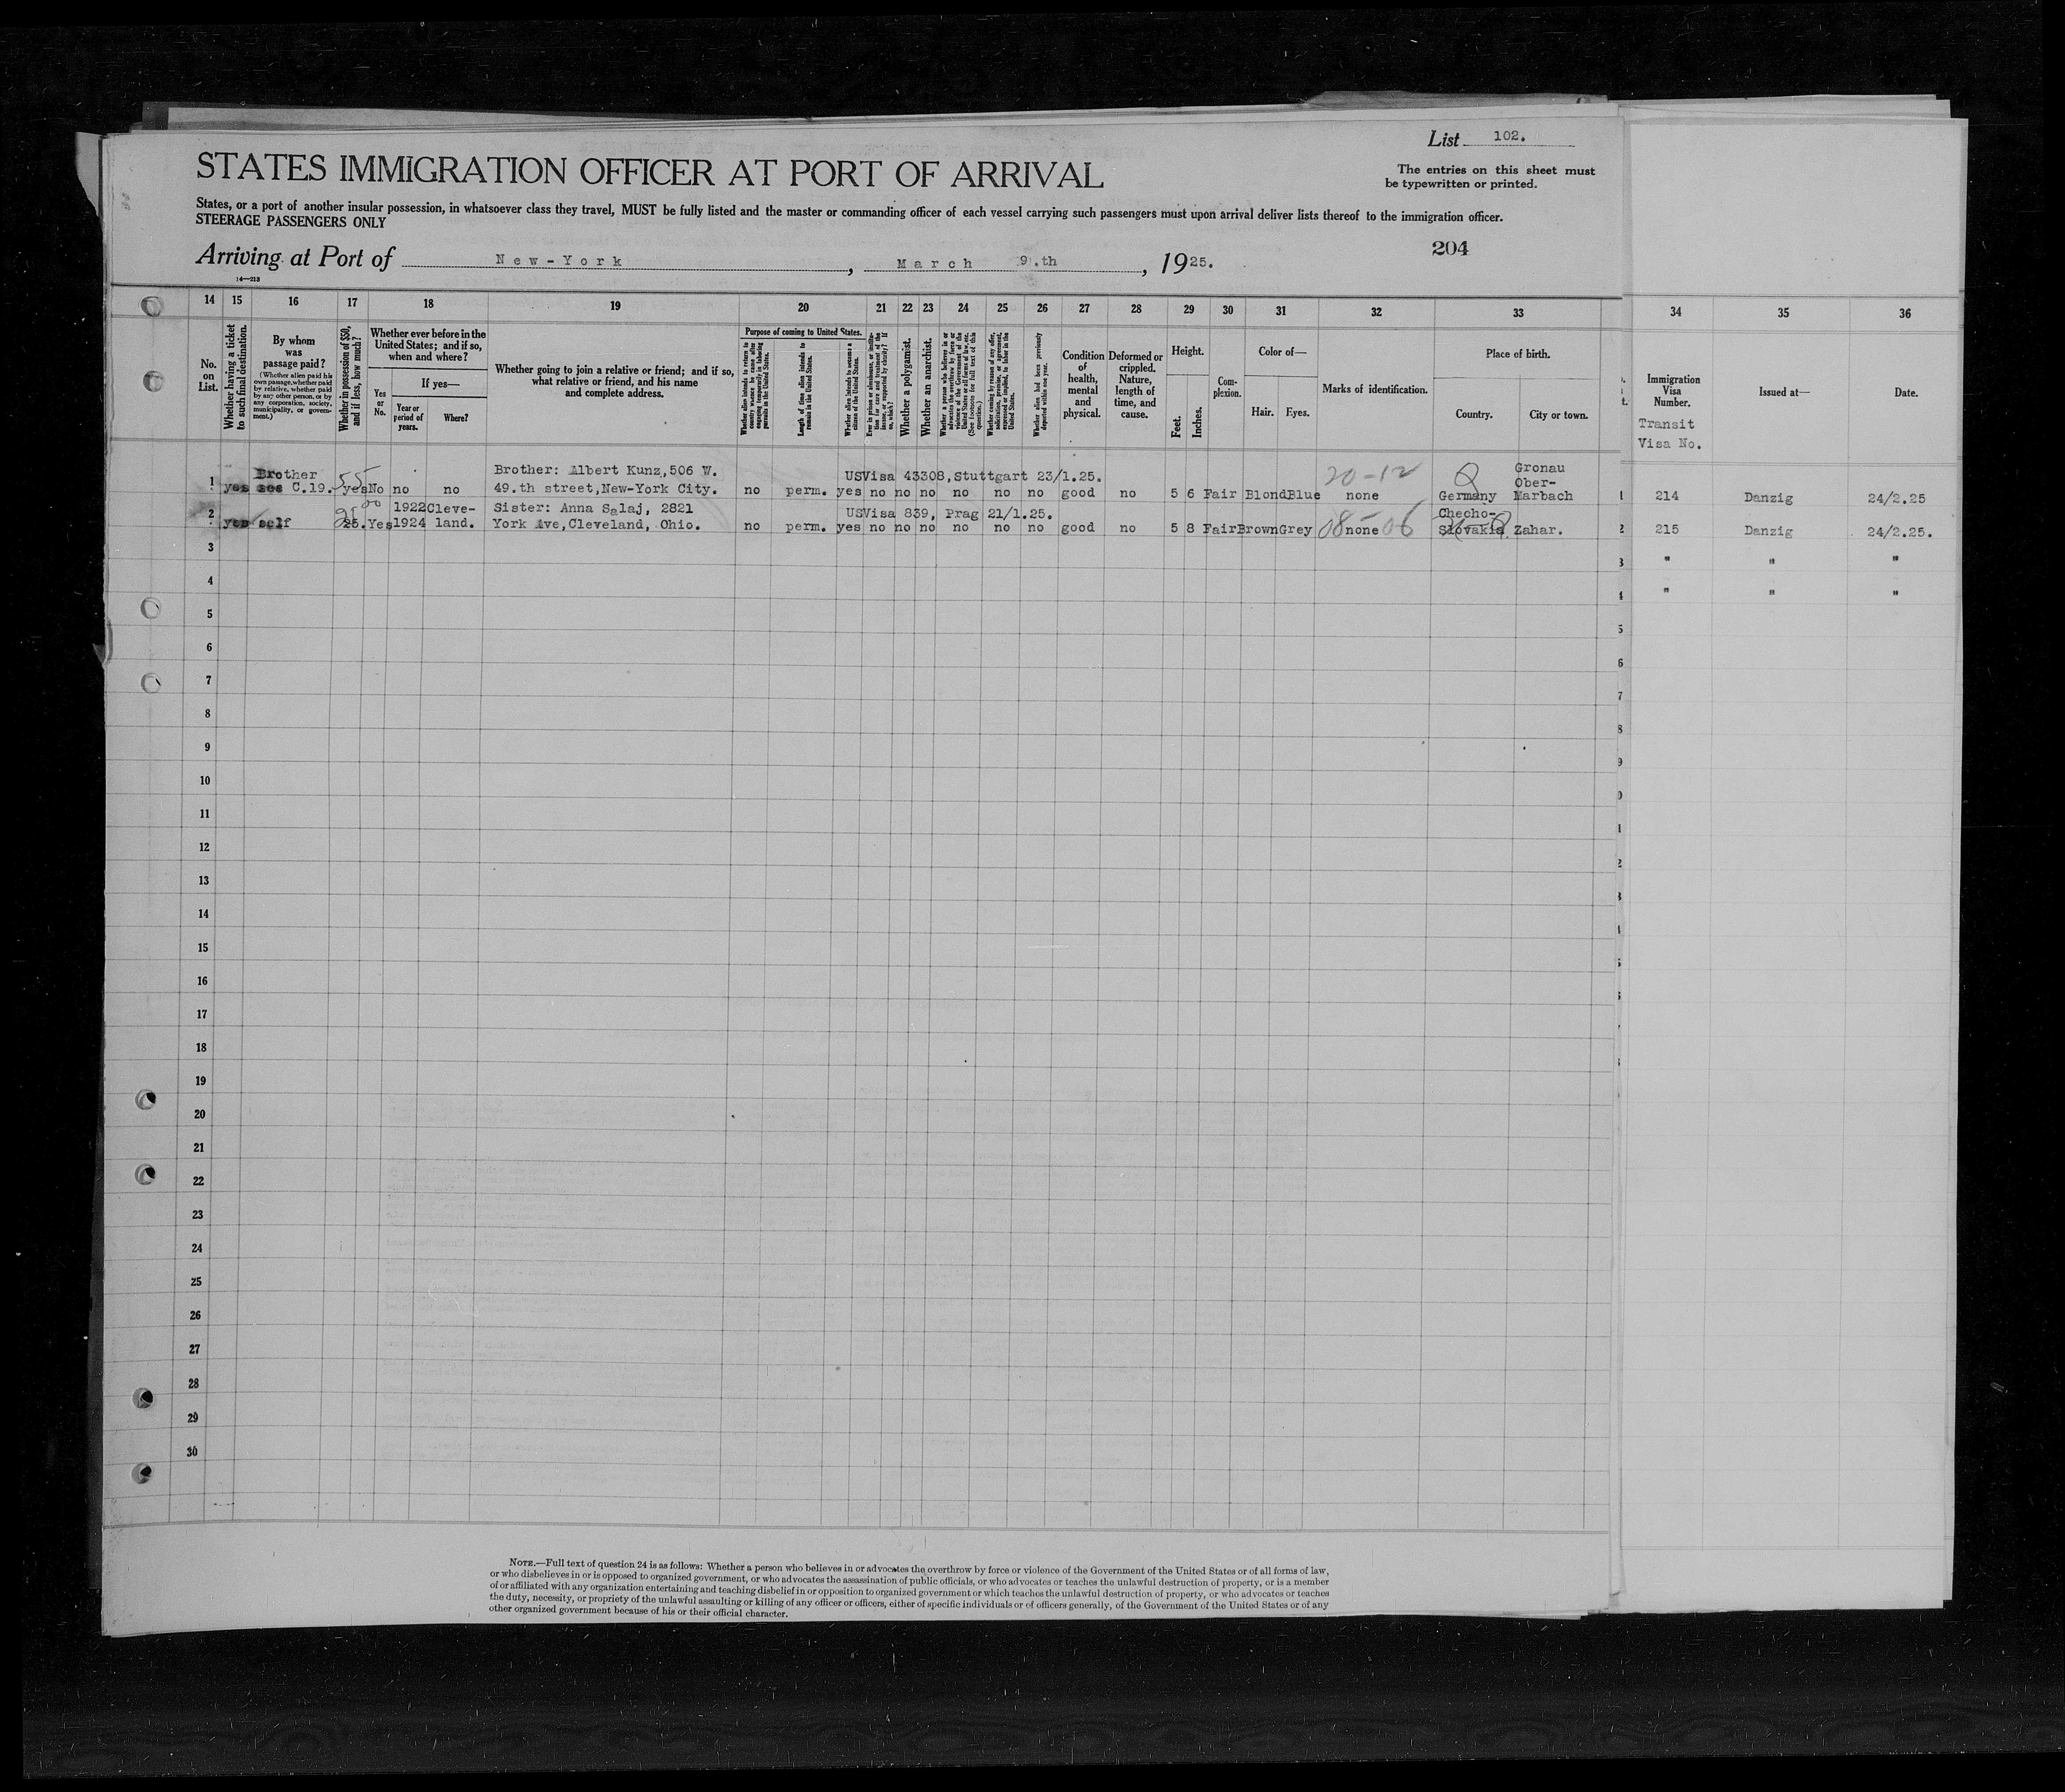 List 102.
STATES IMMIGRATION OFFICER AT PORT OF ARRIVAL
The entries on this sheet must
be typewritten or printed.
States, or a port of another insular possession, in whatsoever class they travel, MUST be fully listed and the master or commanding officer of each vessel carrying such passengers must upon arrival deliver lists thereof to the immigration officer.
STEERAGE PASSENGERS ONLY
Arriving at Port of New-York, March 9.th, 1925.
204
14—213
14 15 16 17 18 19 20 21 22 23 24 25 26 27 28 29 30 31 32 33 34 35 36
No. on List.
Whether having a ticket to such final destination.
By whom was passage paid?
(Whether alien paid his own passage, whether paid by relative, whether paid by any other person, or by any corporation, society, municipality, or government.)
Whether in possession of $50, and if less, how much?
Whether ever before in the United States; and if so, when and where?
Yes or No.
If yes—
Year or period of years.
Where?
Whether going to join a relative or friend; and if so, what relative or friend, and his name and complete address.
Purpose of coming to United States.
Whether alien intends to return to country whence he came after engaging temporarily in laboring pursuits in the United States.
Length of time alien intends to remain in the United States.
Whether alien intends to become a citizen of the United States.
Ever in prison or almshouse, or institution for care and treatment of the insane, or supported by charity? If so, which?
Whether a polygamist.
Whether an anarchist.
Whether a person who believes in or advocates the overthrow by force or violence of the Government of the United States or all forms of law, etc. (See footnote for full text of this question.)
Whether coming by reason of any offer, solicitation, promise, or agreement, expressed or implied, to labor in the United States.
Whether alien had been previously deported within one year.
Condition of health, mental and physical.
Deformed or crippled. Nature, length of time, and cause.
Height.
Feet.
Inches.
Complexion.
Color of—
Hair.
Eyes.
Marks of identification.
Place of birth.
Country.
City or town.
Immigration Visa Number.
Transit
Visa No.
Issued at—
Date.
Brother 55 Brother: Albert Kunz,506 W. USVisa 43308,Stuttgart 23/1.25. 20-12 Q Gronau
Ober-
1 yes see C.19. yes No no no 49.th street,New-York City. no perm. yes no no no no no no good no 5 6 Fair Blond Blue none Germany Marbach 1 214 Danzig 24/2.25
1922 Cleve- Sister: Anna Salaj, 2821 USVisa 839, Prag 21/1.25. Checho-
2 yes self 25. Yes 1924 land. York Ave,Cleveland, Ohio. no perm. yes no no no no no no good no 5 8 Fair Brown Grey none Slovakia Zahar. 2 215 Danzig 24/2.25.
3 3 " " "
4 4 " " "
5 5
6 6
7 7
8 8
9 9
10 0
11 1
12 2
13 3
14
15
16
17
18
19
20
21
22
23
24
25
26
27
28
29
30
NOTE.—Full text of question 24 is as follows: Whether a person who believes in or advocates the overthrow by force or violence of the Government of the United States or of all forms of law,
or who disbelieves in or is opposed to organized government, or who advocates the assassination of public officials, or who advocates or teaches the unlawful destruction of property, or is a member
of or affiliated with any organization entertaining and teaching disbelief in or opposition to organized government or which teaches the unlawful destruction of property, or who advocates or teaches
the duty, necessity, or propriety of the unlawful assaulting or killing of any officer or officers, either of specific individuals or of officers generally, of the Government of the United States or of any
other organized government because of his or their official character.